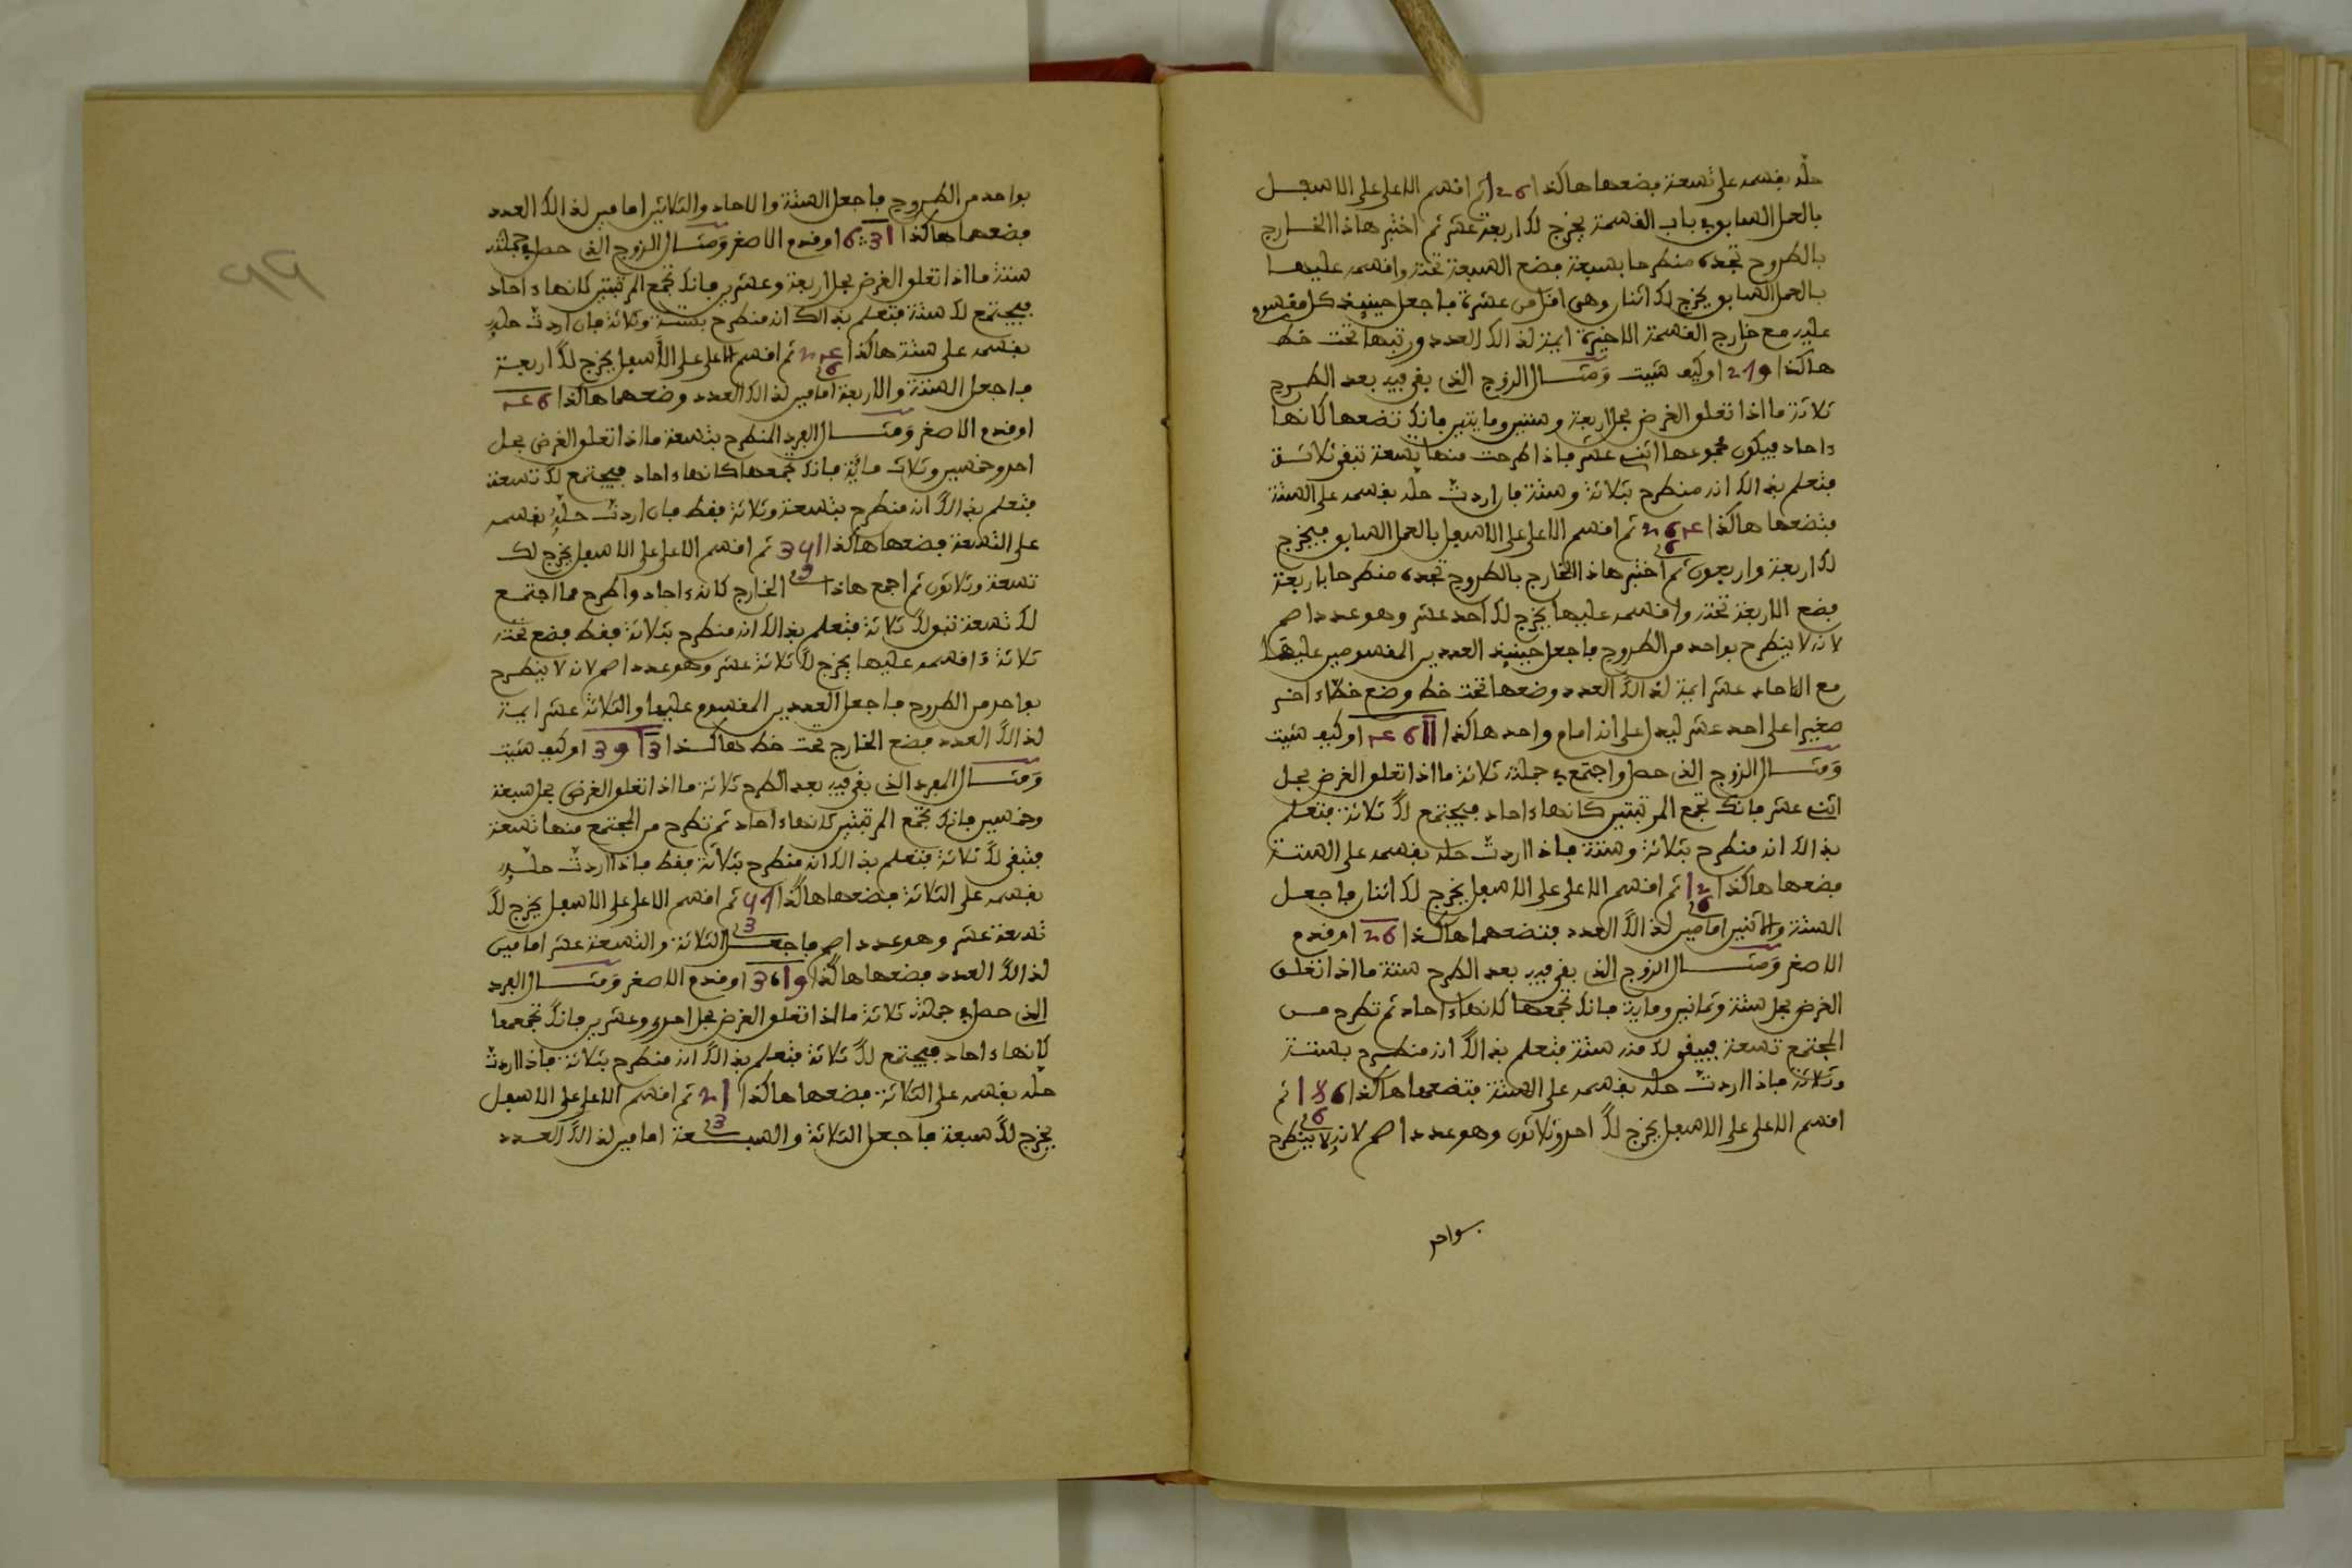 حله بقسمه على تسعة فضعها هاكذا 126 ثم اقسم الاعلى على الاسفل
بالعمل السابق في باب القسمة يخرج لك اربعة عشر ثم اختبر هاذا الخارج
بالطروح تجده منطرحا بسبعة فضع السبعة تحته واقسمه عليها
بالعمل السابق يخرج لك اثنان وهى اقل من عشرة فاجعل حينيذ كل مقسوم
عليه مع خارج القسمة الاخيرة ايمة لذالك العدد ورتبها تحت خط
هاكذا 219 او كيف شيت ومثال الزوج الذى بقى فيه بعد الطرح
ثلاثة ما اذا تعلق الغرض بحل اربعة وستين ومايتين فانك تضعها كانها
ءاحاد فيكون مجموعها اثنى عشر فاذا طرحت منها تسعة تبقى ثلاثة
فتعلم بذالك انه منطرح بثلاثة وستة فان اردت حله بقسمه على الستة
فتضعها هاكذا 264 ثم اقسم الاعلى على الاسفل بالعمل السابق فيخرج
6
لك اربعة واربعون ثم اختبر هاذا الخارج بالطروح تجده منطرحا باربعة
فضع الاربعة تحته واقسمه عليها يخرج لك احد عشر وهو عدد اصم
لانه لا ينطرح بواحد من الطروح فاجعل حينيذ العددين المقسومين عليهما
مع الاحاد عشر ايمة لذالك العدد وضعها تحت خط وضع خطا ءاخر
صغيرا على احد عشر ليدل على انه امام واحد هاكذا 11 6 4 او كيف شيت
ومثال الزوج الذى حصل واجتمع في جملته ثلاثة ما اذا تعلق الغرض بحل
اثنى عشر فانك تجمع المرتبتين كانها ءاحاد فيجتمع لك ثلاثة فتعلم
بذالك انه منطرح بثلاثة وستة فاذا اردت حله بقسمه على الستة
فضعها هاكذا 12 ثم اقسم الاعلى على الاسفل يخرج لك اثنان فاجعل
6
الستة والاثنين امامين لذالك العدد فتضعهما هاكذا 26 او قدم
الاصغر ومثال الزوج الذى بقى فيه بعد الطرح ستة ما اذا تعلق
الغرض بحل ستة وثمانين وماية فانك تجمعها كانها ءاحاد ثم تطرح من
المجتمع تسعة فيبقى لك منه ستة فتعلم بذالك انه منطرح بستة
وثلاثة فاذا اردت حله بقسمه على الستة فتضعها هاكذا 186 ثم
6
اقسم الاعلى على الاسفل يخرج لك احد وثلاثون وهو عدد اصم لانه لا ينطرح
بواحد
بواحد من الطروح فاجعل الستة والاحاد والثلاثين امامين لذالك العدد
فضعهما هاكذا 31 6 او قدم الاصغر ومثال الزوج الذى حصل في جملته
ستة ما اذا تعلق الغرض بحل اربعة وعشرين فانك تجمع المرتبتين كانها ءاحاد
فيجتمع لك ستة فتعلم بذالك انه منطرح بستة وثلاثة فان اردت حله
بقسمه على ستة هاكذا 24 ثم اقسم الاعلى على الاسفل يخرج لك اربعة
6
فاجعل الستة والاربعة امامين لذالك العدد وضعهما هاكذا 46
او قدم الاصغر ومثال الفرد المنطرح بتسعة ما اذا تعلق الغرض بحل
احد وخمسين وثلاث ماية فانك تجمعها كانها ءاحاد فيجتمع لك تسعة
فتعلم بذالك انه منطرح بتسعة وثلاثة فقط فان اردت حله بقسمه
على التسعة فضعها هاكذا 351 ثم اقسم الاعلى على الاسفل يخرج لك
9
تسعة وثلاثون ثم اجمع هاذا الخارج كانه ءاحاد واطرح مما اجتمع
لك تسعة تبق لك ثلاثة فتعلم بذالك انه منطرح بثلاثة فقط فضع تحته
ثلاثة واقسمه عليها يخرج لك ثلاثة عشر وهو عدد اصم لانه لا ينطرح
بواحد من الطروح فاجعل العددين المقسوم عليهما والثلاثة عشر ايمة
لذالك العدد فضع الخارج تحت خط هاكذا 13 9 3 او كيف شيت
ومثال الفرد الذى بقى فيه بعد الطرح ثلاثة ما اذا تعلق الغرض بحل سبعة
وخمسين فانك تجمع المرتبتين كانها ءاحاد ثم تطرح من المجتمع منها تسعة
فتبقى لك ثلاثة فتعلم بذالك انه منطرح بثلاثة فقط فاذا اردت حله
بقسمه على الثلاثة فضعها هاكذا 57 ثم اقسم الاعلى على الاسفل يخرج لك
3
تسعة عشر وهو عدد اصم فاجعل الثلاثة والتسعة عشر امامين
لذالك العدد فضعها هاكذا 19 3 او قدم الاصغر ومثال الفرد
الذى حصل في جملته ثلاثة ما اذا تعلق الغرض بحل احد وعشرين فانك تجمعها
كانها ءاحاد فيجتمع لك ثلاثة فتعلم بذالك انه منطرح بثلاثة فاذا اردت
حله بقسمه على الثلاثة فضعها هاكذا 21 ثم اقسم الاعلى على الاسفل
3
يخرج لك سبعة فاجعل الثلاثة والسبعة امامين لذالك العدد